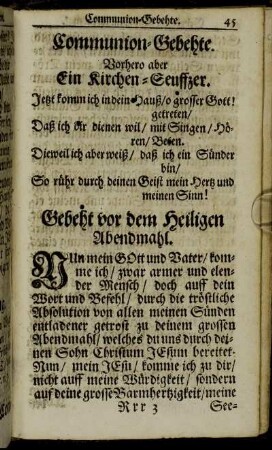 Communion-Gebehte. 45
Communion-Gebehte.
Vorhero aber
Ein Kirchen-Seuffzer.
Jetzt komm ich in dein Hauß/o grosser Gott!
getreten/
Daß ich dir dienen wil/ mit Singen/ Hö-
ren/ Beten.
Dieweil ich aber weiß/ daß ich ein Sünder
bin/
So rühr durch deinen Geist mein Hertz und
meinen Sinn!
Gebeht vor dem Heiligen
Abendmahl.
NUn mein GOtt und Vater/ kom-
me ich/ zwar armer und elen-
der Mensch/ doch auff dein
Wort und Befehl/ durch die tröstliche
Absolution von allen meinen Sünden
entladener getrost zu deinem grossen
Abendmahl/ welches du uns durch dei-
nen Sohn Christum JEsum bereitet.
Nun/ mein JEsu/ komme ich zu dir/
nicht auff meine Würdigkeit/ sondern
auf deine grosse Barmhertzigkeit/meine
Rrr 3 See-